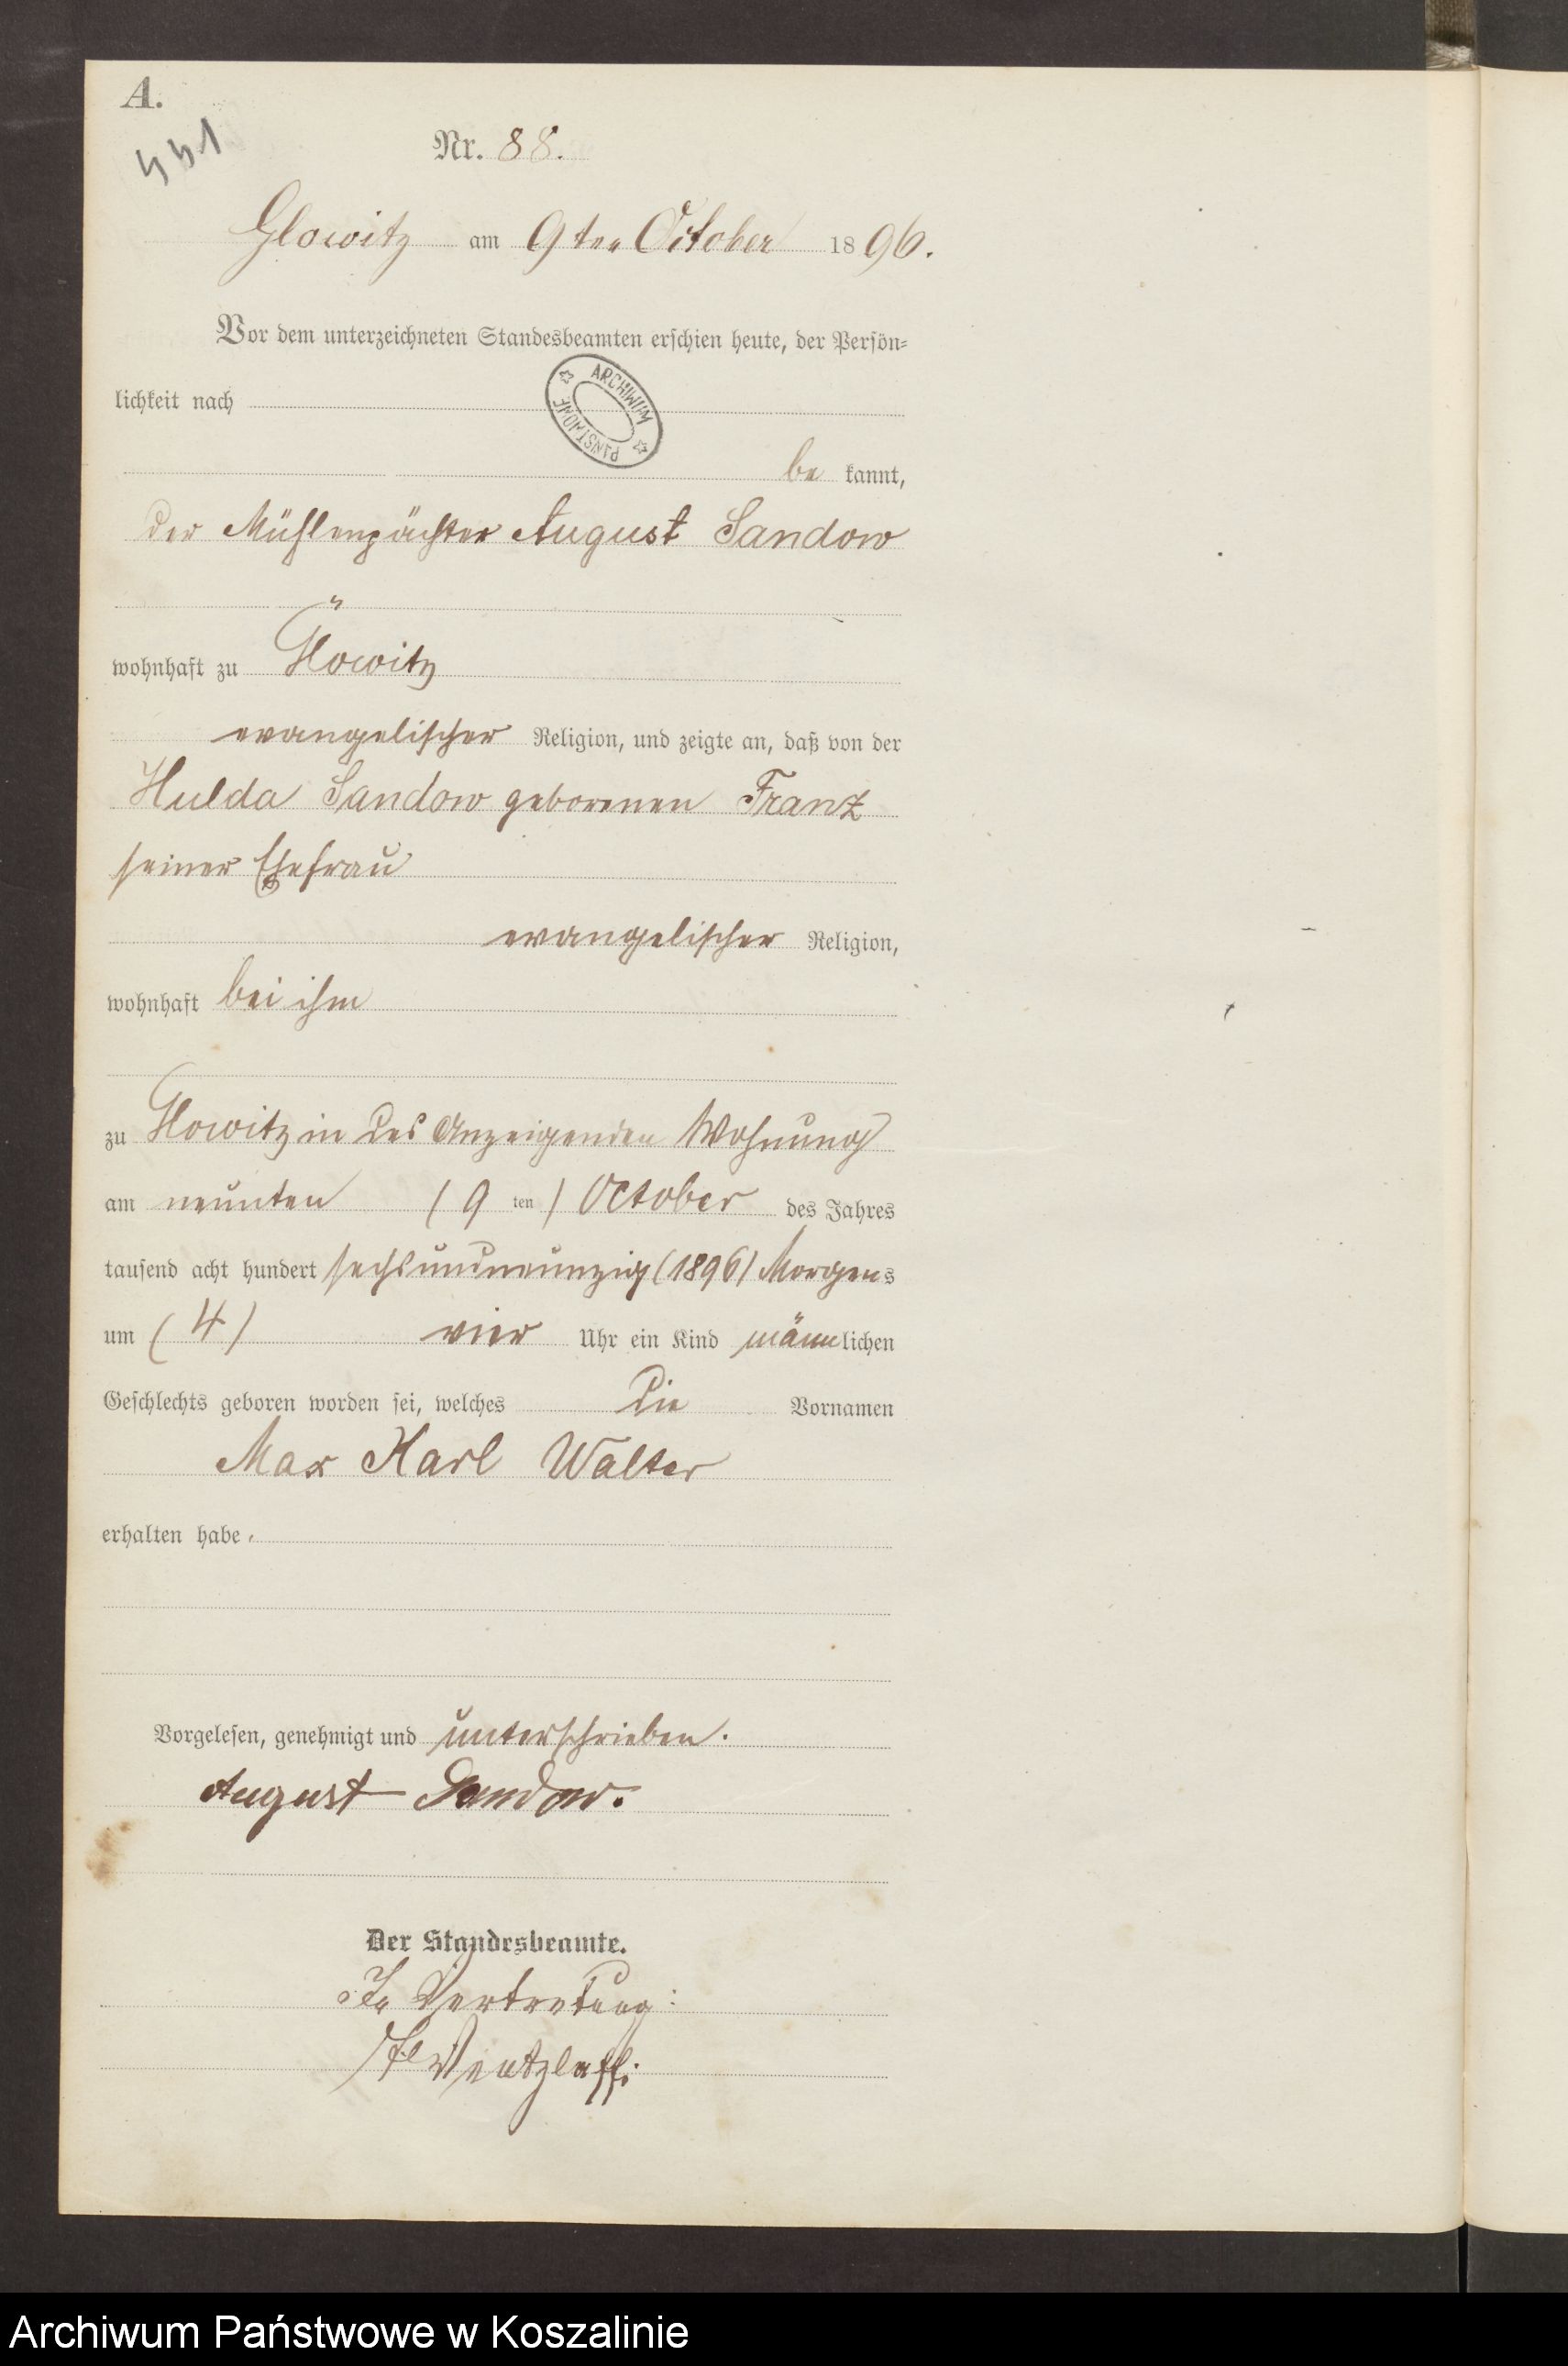 A.
441
Nr. 88.
Glowitz am 9ten October 1896.
Vor dem unterzeichneten Standesbeamten erschien heute, der Persön-
lichkeit nach
ARCHIWUM PAŃSTWOWE
be kannt,
der Mühlenpächter August Sandow
wohnhaft zu Glowitz
evangelischer Religion, und zeigte an, daß von der
Hulda Sandow geborenen Franz
seiner Ehefrau
evangelischer Religion,
wohnhaft bei ihm
zu Glowitz in des Anzeigenden Wohnung
am neunten (9 ten) October des Jahres
tausend acht hundert sechsundneunzig (1896) Morgens
um (4) vier Uhr ein Kind männlichen
Geschlechts geboren worden sei, welches die Vornamen
Max Karl Walter
erhalten habe.
Vorgelesen, genehmigt und unterschrieben.
August Sandow.
Der Standesbeamte.
In Vertretung:
Wentzlaff.
Archiwum Państwowe w Koszalinie